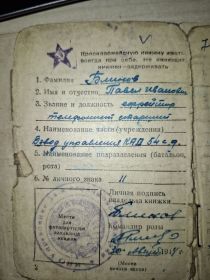 Красноармейскую книжку иметь
всегда при себе. Не имеющих
книжек — задерживать.
1. Фамилия Блинов
2. Имя и отчество Павел Иванович
3. Звание и должность ефрейтор
телефонист старший
4. Наименование части (учреждения)
Взвод управления 54 с.д.
5. Наименование подразделения (батальон,
рота)
6. № личного знака 11
Личная подпись
владельца книжки
Блинов
Командир роты
Место
для